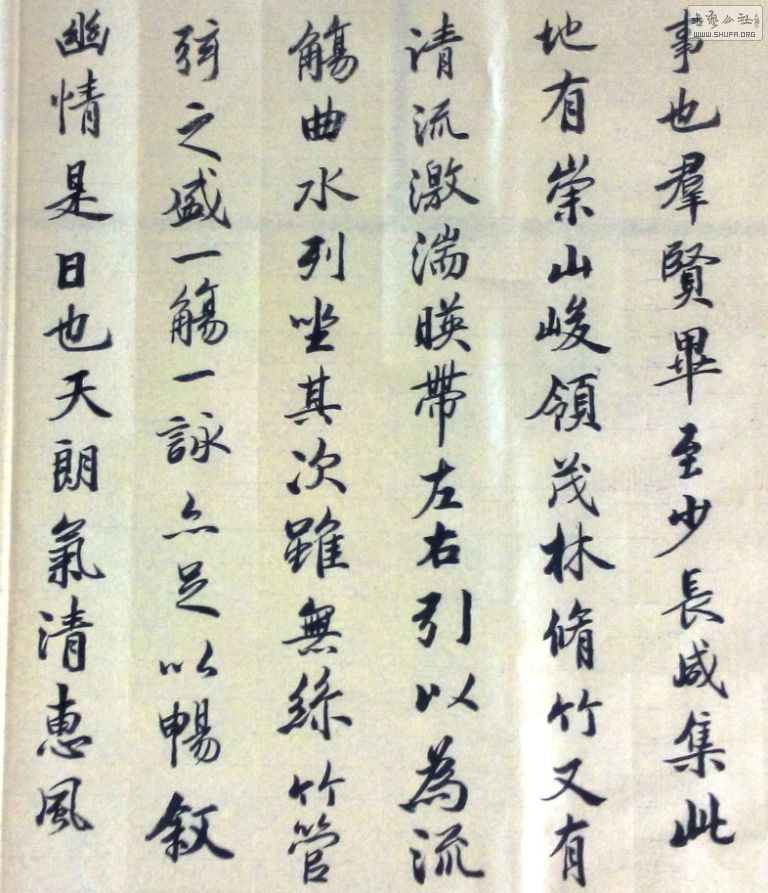 事也羣賢畢至少長咸集此
地有崇山峻領茂林脩竹又有
清流激湍暎帶左右引以為流
觴曲水列坐其次雖無絲竹管
弦之盛一觴一詠亦足以暢叙
幽情是日也天朗氣清惠風
WWW.SHUFA.ORG